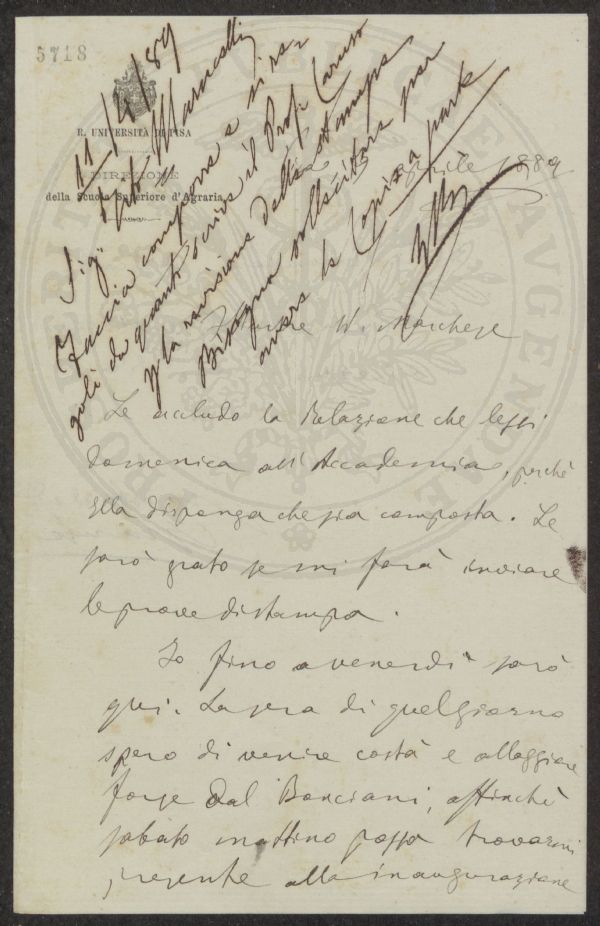 5718
R. UNIVERSITÀ DI PISA
DIREZIONE
della Scuola Superiore d'Agraria
aprile 1889
11/4/89
Sig.
Faccia comporre e si re-
goli da quanto scrive il Prof. Caruso
la revisione delle stampe
Bisogna sollecitare per
avere la Copia parte
Illustre Marchese
Le accludo la Relazione che lessi
domenica all'Accademia, perchè
Ella disponga che sia composta. Le
sarò grato se mi farà inviare
le prove di stampa.
Io fino a venerdì sarò
qui. La sera di quel giorno
spero di venire costà e alloggiare
forse dal Bonciani, affinchè
sabato mattino possa trovarmi
presente alla inaugurazione
PROSPERITATI PUBLICAE AUGENDAE